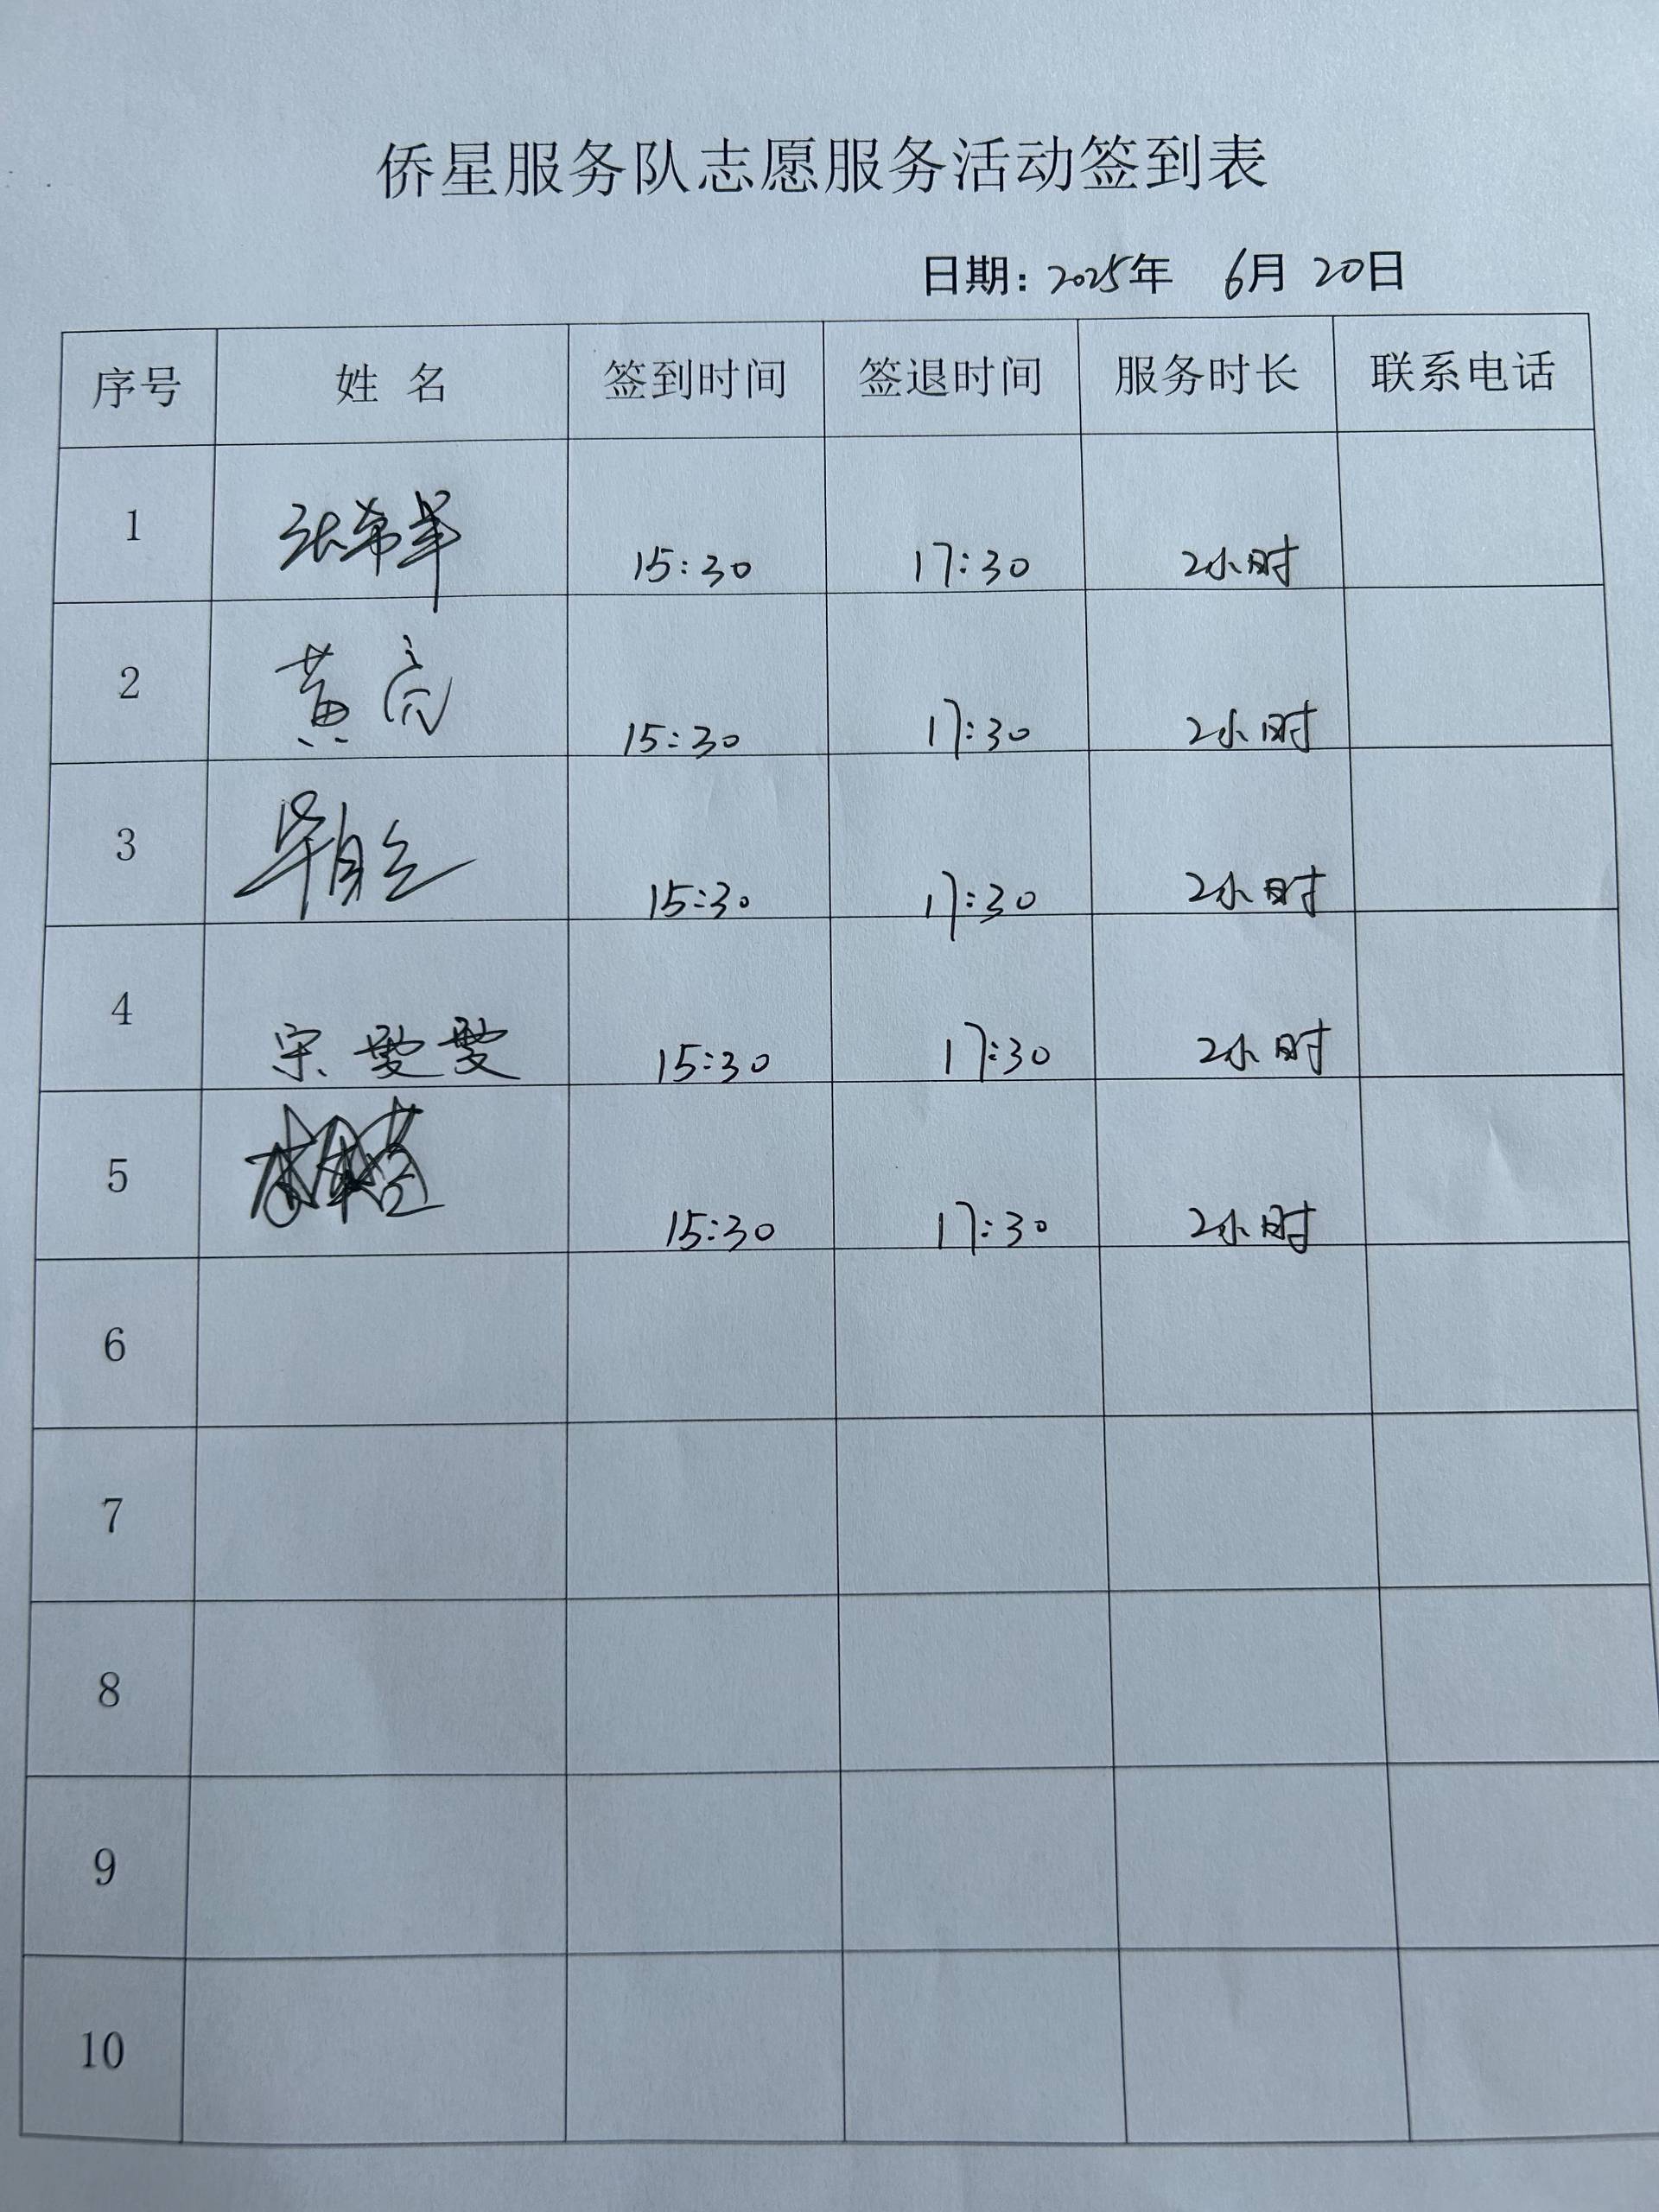 侨星服务队志愿服务活动签到表
日期：2025年 6月 20日
序号 姓 名 签到时间 签退时间 服务时长 联系电话
1 张希羊 15:30 17:30 2小时
2 黄亮 15:30 17:30 2小时
3 15:30 17:30 2小时
4 宋雯雯 15:30 17:30 2小时
5 15:30 17:30 2小时
6
7
8
9
10